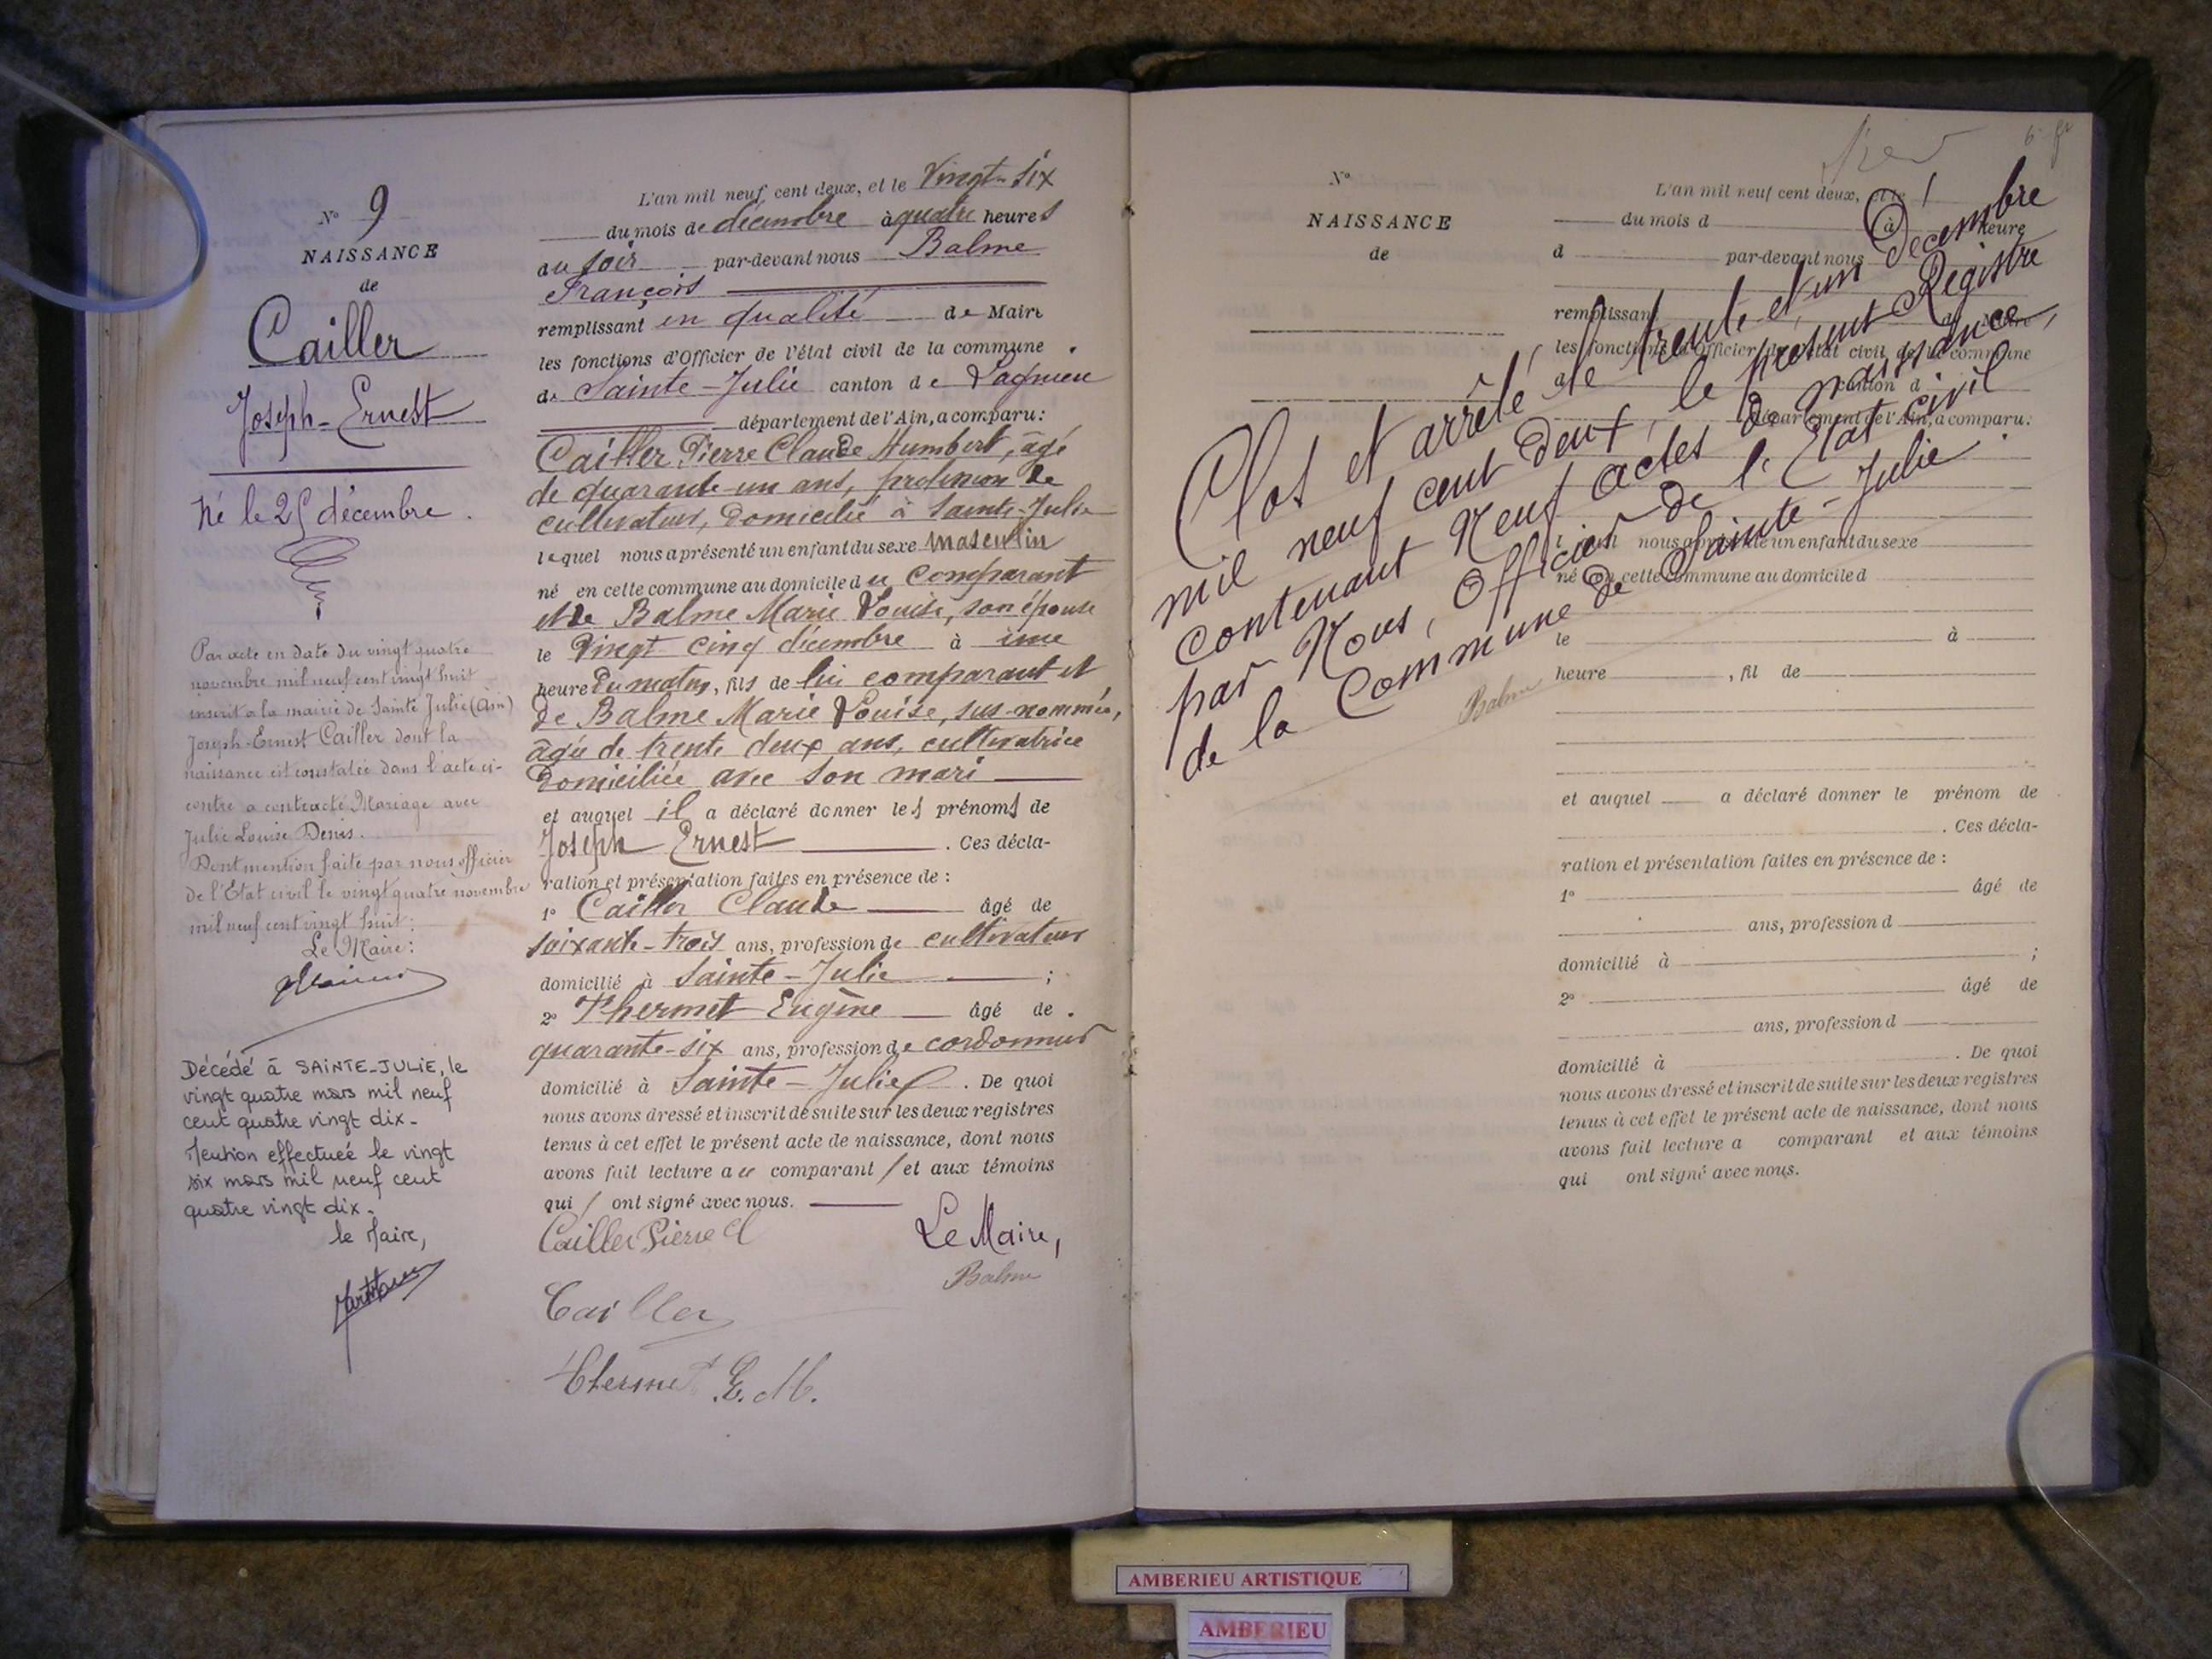 N° 9
NAISSANCE
de
Cailler
Joseph-Ernest
Né le 25 décembre.
Par acte en date du vingt quatre
novembre mil neuf cent vingt huit
inscrit a la mairie de Sainte Julie (Ain)
Joseph-Ernest Cailler dont la
naissance est constatée dans l'acte ci-
contre a contracté Mariage avec
Julie Louise Denis.
Dont mention faite par nous officier
de l'Etat civil le vingt quatre novembre
mil neuf cent vingt huit:
Le Maire:
Décédé à SAINTE-JULIE, le
vingt quatre mars mil neuf
cent quatre vingt dix.
Mention effectuée le vingt
six mars mil neuf cent
quatre vingt dix.
le Maire,
L'an mil neuf cent deux, et le Vingt-six
du mois de décembre à quatre heures
du soir par-devant nous Balme
François
remplissant en qualité de Maire
les fonctions d'Officier de l'état civil de la commune
de Sainte-Julie canton de Lagnieu
département de l'Ain, a comparu:
Cailler Pierre Claude Humbert, âgé
de quarante-un ans, profession de
cultivateur, domicilié à Sainte-Julie
lequel nous a présenté un enfant du sexe masculin
né en cette commune au domicile du comparant
et de Balme Marie Louise, son épouse
le vingt cinq décembre à une
heure du matin, fils de lui comparant et
de Balme Marie Louise, sus-nommée,
âgée de trente deux ans, cultivatrice
domiciliée avec son mari
et auquel il a déclaré donner les prénoms de
Joseph Ernest. Ces décla-
ration et présentation faites en présence de :
1° Cailler Claude âgé de
soixante-trois ans, profession de cultivateur
domicilié à Sainte-Julie ;
2° Thermet Eugène âgé de
quarante-six ans, profession de cordonnier
domicilié à Sainte-Julie. De quoi
nous avons dressé et inscrit de suite sur les deux registres
tenus à cet effet le présent acte de naissance, dont nous
avons fait lecture au comparant / et aux témoins
qui / ont signé avec nous.
Cailler Pierre Cl
Le Maire,
Balme
Cailler
Thermet E. M.
N°
NAISSANCE
de
L'an mil neuf cent deux, et le
du mois d à heure
d par-devant nous
remplissant de Maire
les fonctions d'Officier de l'état civil de la commune
d canton d
département de l'Ain, a comparu:
Clos et arrêté le trente et un Décembre
mil neuf cent deux, le présent Registre
contenant Neuf actes de naissance,
par Nous, Officier de l'Etat civil
de la Commune de Sainte-Julie.
Balme
l quel nous a présenté un enfant du sexe
né en cette commune au domicile d
le à
heure , fil de
et auquel a déclaré donner le prénom de
. Ces décla-
ration et présentation faites en présence de :
1° âgé de
ans, profession d
domicilié à ;
2° âgé de
ans, profession d
domicilié à . De quoi
nous avons dressé et inscrit de suite sur les deux registres
tenus à cet effet le présent acte de naissance, dont nous
avons fait lecture a comparant et aux témoins
qui ont signé avec nous.
AMBERIEU ARTISTIQUE
AMBERIEU